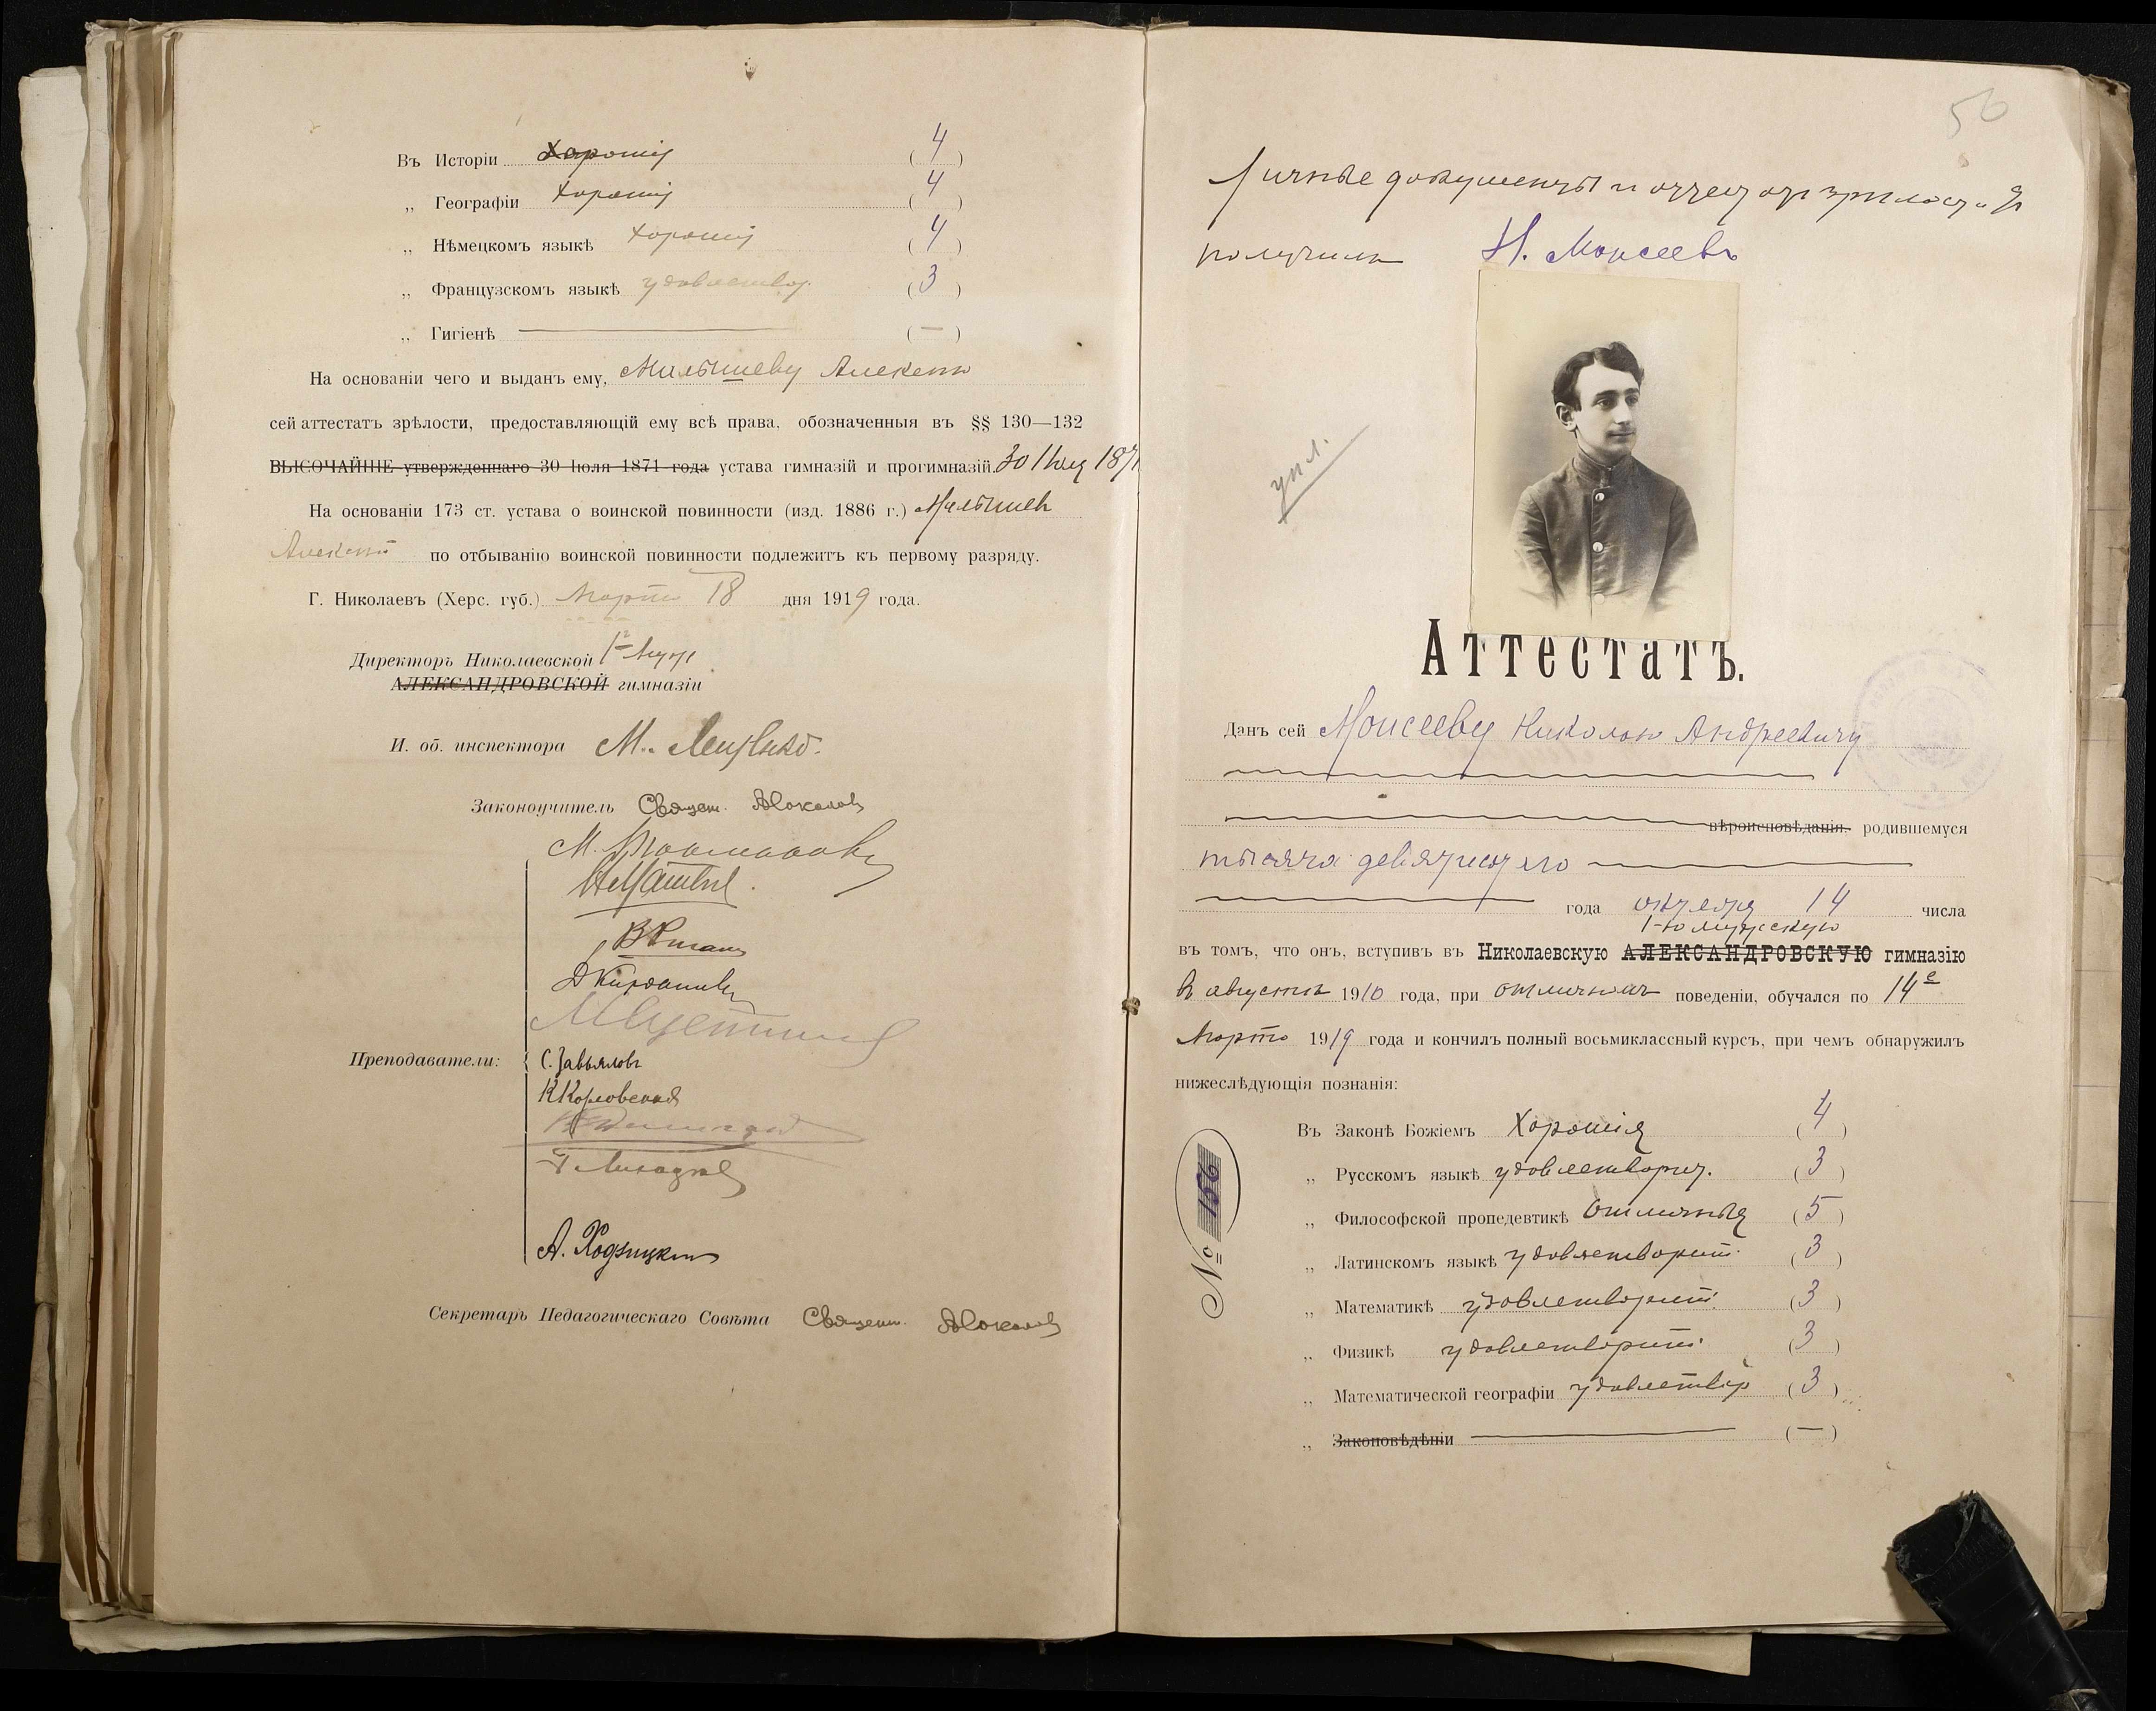 Въ Исторіи хорошія (4)
„ Географіи хорошія (4)
„ Нѣмецкомъ языкѣ хорошія (4)
„ Французскомъ языкѣ удовлетвор. (3)
„ Гигіенѣ — (—)
На основаніи чего и выданъ ему, Малышеву Алексѣю
сей аттестатъ зрѣлости, предоставляющій ему всѣ права, обозначенныя въ §§ 130—132
ВЫСОЧАЙШЕ утвержденнаго 30 Іюля 1871 года устава гимназій и прогимназій. 30 Іюля 1871
На основаніи 173 ст. устава о воинской повинности (изд. 1886 г.) Малышевъ
Алексѣй по отбыванію воинской повинности подлежитъ къ первому разряду.
Г. Николаевъ (Херс. губ.) Марта 18 дня 1919 года.
Директоръ Николаевской 1й
АЛЕКСАНДРОВСКОЙ гимназіи
И. об. инспектора М.
Законоучитель Священ.
Преподаватели:
С. Завьяловъ
К Карловская
А. Ходзицкій
Секретарь Педагогическаго Совѣта Священ.
56
Личные документы и аттестат зрѣлости я
получилъ Н. Моисеевъ
Аттестатъ.
Данъ сей Моисееву Николаю Андреевичу
вѣроисповѣданія, родившемуся
тысяча девятисотаго
года октября 14 числа
1-ю мужскую
въ томъ, что онъ, вступивъ въ Николаевскую АЛЕКСАНДРОВСКУЮ гимназію
въ августѣ 1910 года, при отличномъ поведеніи, обучался по 14е
Марта 1919 года и кончилъ полный восьмиклассный курсъ, при чемъ обнаружилъ
нижеслѣдующія познанія:
Въ Законѣ Божіемъ Хорошія (4)
„ Русскомъ языкѣ удовлетворит. (3)
„ Философской пропедевтикѣ Отличныя (5)
„ Латинскомъ языкѣ удовлетворит. (3)
„ Математикѣ удовлетворит. (3)
„ Физикѣ удовлетворит. (3)
„ Математической географіи удовлетвор (3)
„ Законовѣдѣніи — (—)
№ 156